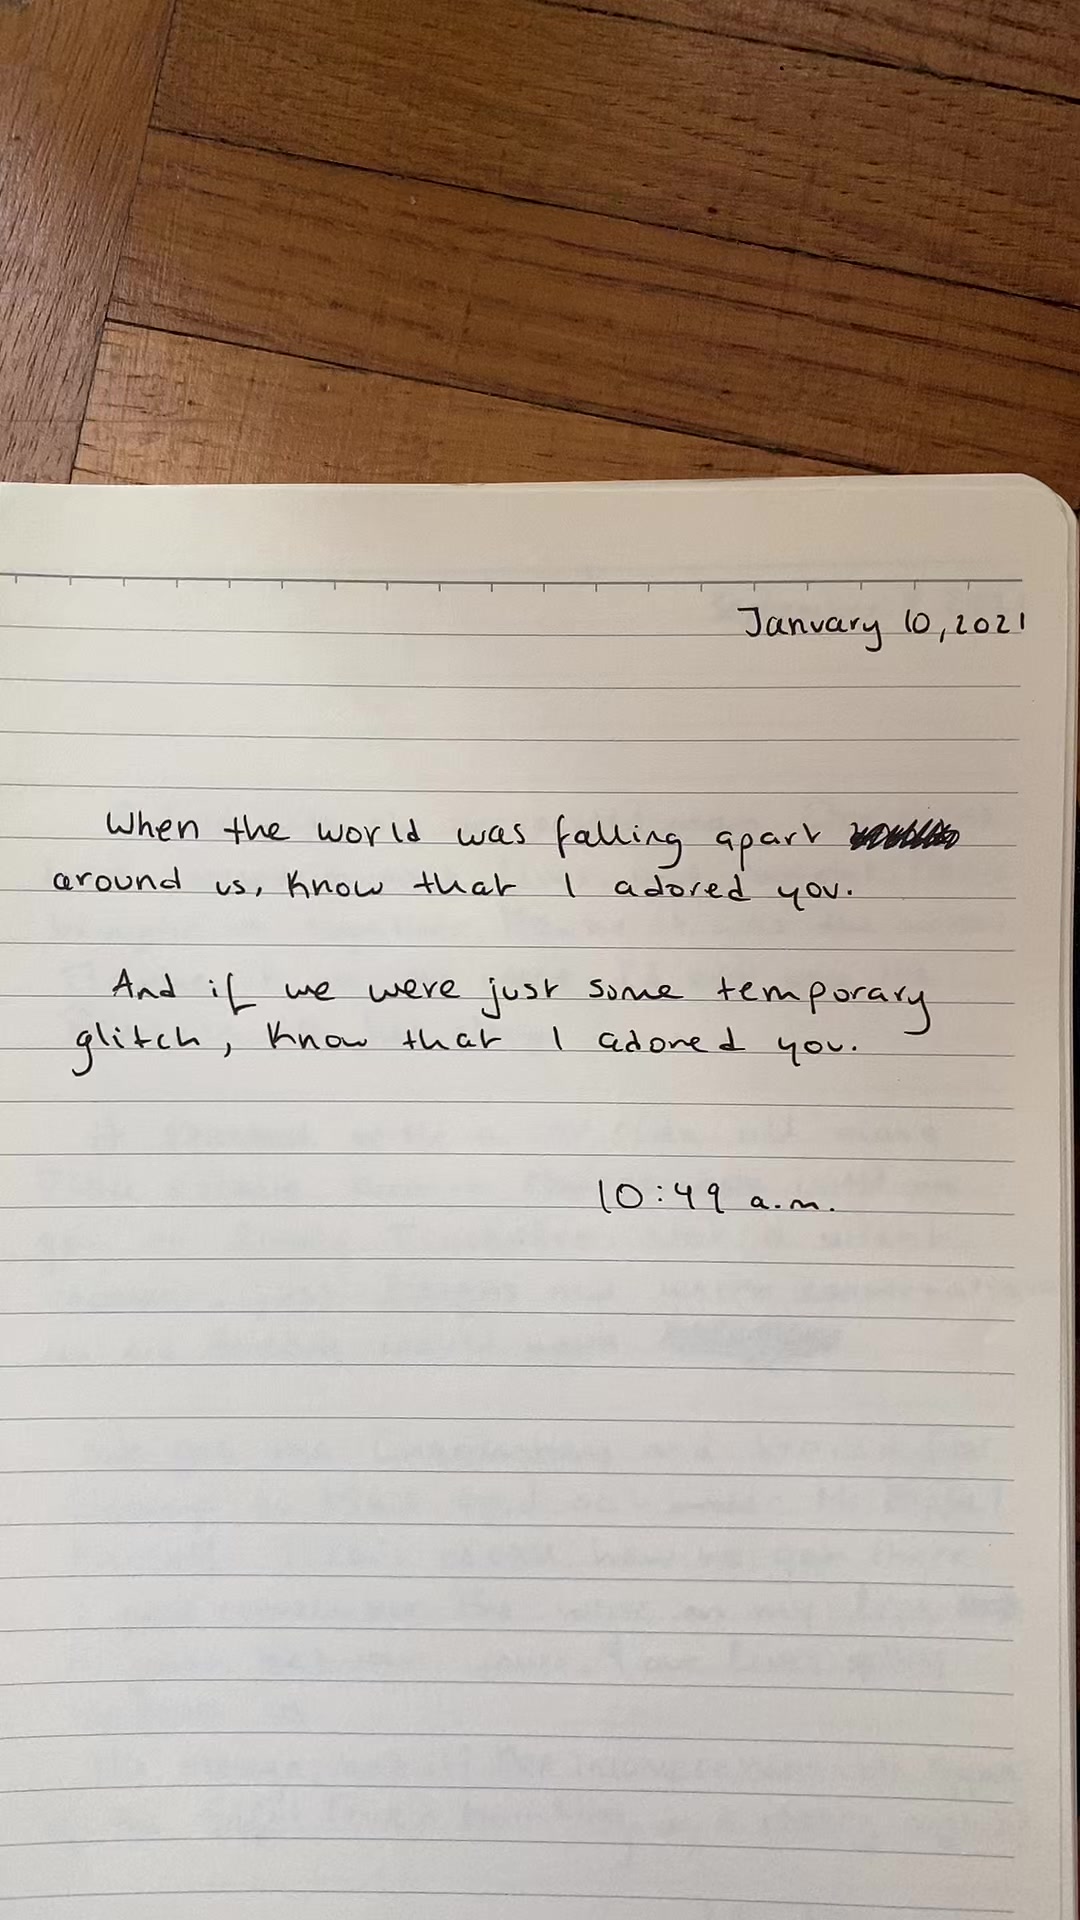 January 10, 2021
When the world was falling apart
around us, know that I adored you.
And if we were just some temporary
glitch, know that I adored you.
10:49 a.m.